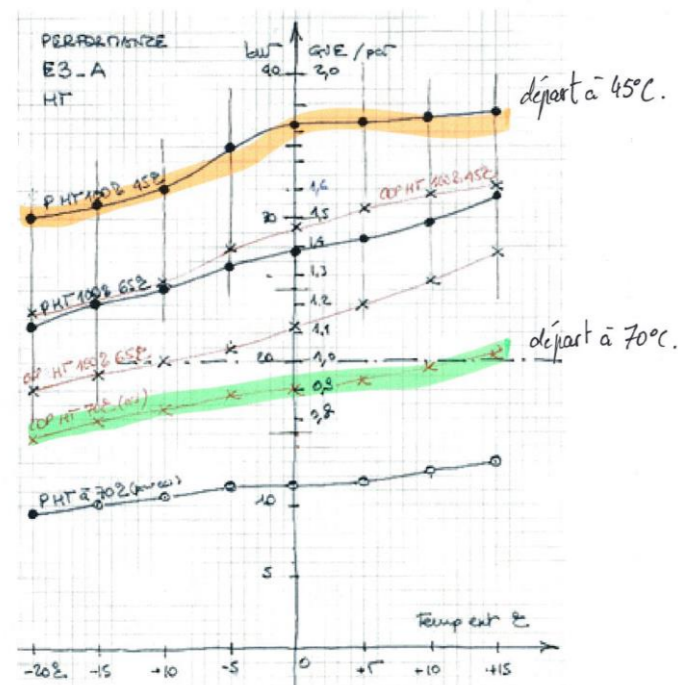 PERFORMANZE
E3-A
HT
kW GUE / PCI
40 2,0
départ à 45°C.
1,6
P HT 100% 45°C
COP HT 100% 45°C
30 1,5
1,4
P HT 100% 65°C
1,3
1,2
1,1
départ à 70°C.
COP HT 100% 65°C
20 1,0
0,9
COP HT 70°C
P HT à 70°C
10
5
Temp ext °C
-20°C -15 -10 -5 0 +5 +10 +15